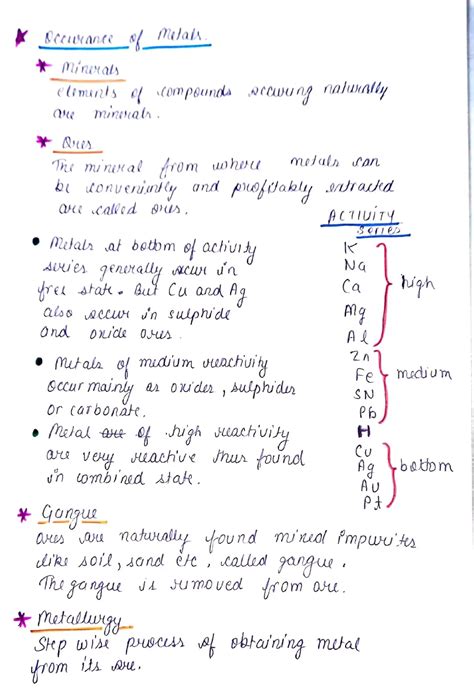 Occurance of Metals.
Minerals
elements of compounds occuring naturally
are minerals.
Ores
The mineral from where metals can
be conveniently and profitably extracted
are called ores.
ACTIVITY
Series
• Metals at bottom of activity
series generally occur in
free state. But Cu and Ag
also occur in sulphide
and oxide ores.
K
Na
Ca
Mg
Al
high
• Metals of medium reactivity
occur mainly as oxides, sulphides
or carbonate.
Zn
Fe
SN
Pb
medium
H
• Metal are of high reactivity
are very reactive thus found
in combined state.
Cu
Ag
AU
Pt
bottom
Gangue
ores are naturally found mined impurites
like soil, sand etc, called gangue.
The gangue is removed from ore.
Metallurgy
Step wise process of obtaining metal
from its ore.